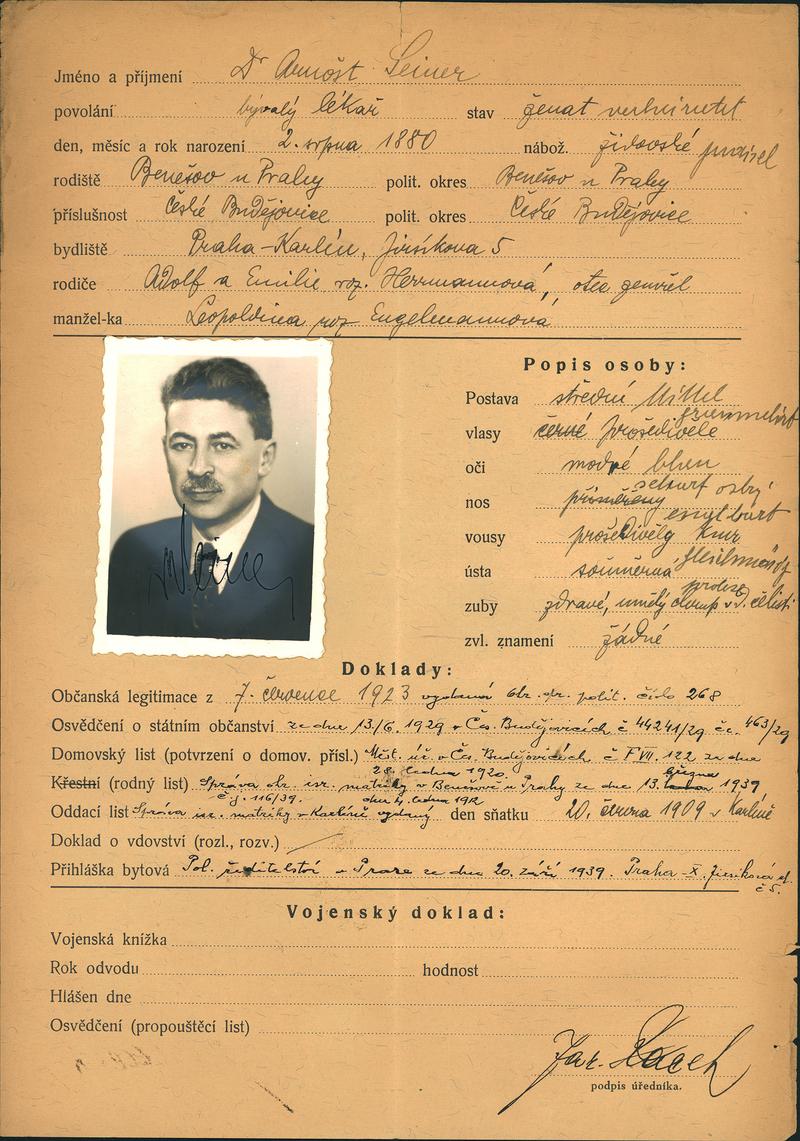 Jméno a příjmení Dr Arnošt Seiner
povolání bývalý lékař stav ženat verheiratet
den, měsíc a rok narození 2. srpna 1880 nábož. židovské
rodiště Benešov u Prahy polit. okres Benešov u Prahy
příslušnost České Budějovice polit. okres České Budějovice
bydliště Praha-Karlín, Jirsíkova 5
rodiče Adolf a Emilie roz. Herrmannová, otec zemřel
manžel-ka Leopoldina roz Engelmannová
Popis osoby:
Postava střední Mittel
vlasy černé prošedivělé
oči modré blau
nos přiměřený
vousy prošedivělý knír
ústa souměrná
zuby zdravé, umělý chrup v d. čelisti
zvl. znamení žádné
Doklady:
Občanská legitimace z 7. července 1923 vydaná okr. spr. polit. číslo 268
Osvědčení o státním občanství ze dne 13/6. 1929 v Čes. Budějovicích č 44241/29 čc. 463/29
Domovský list (potvrzení o domov. přísl.) Měst. úř. v Čes. Budějovicích č F VII. 122 ze dne
28. ledna 1920.
Křestní (rodný list) Správa okr. isr. matriky v Benešově u Prahy ze dne 13. března 1939,
č.j. 116/39.
Oddací list Správa isr. matriky v Karlíně vydaný den sňatku 20. června 1909 v Karlíně
Doklad o vdovství (rozl., rozv.)
Přihláška bytová Pol. ředitelství v Praze ze dne 20. září 1939. Praha-X. Jirsíkova ul.
č 5.
Vojenský doklad:
Vojenská knížka
Rok odvodu hodnost
Hlášen dne
Osvědčení (propouštěcí list)
podpis úředníka.